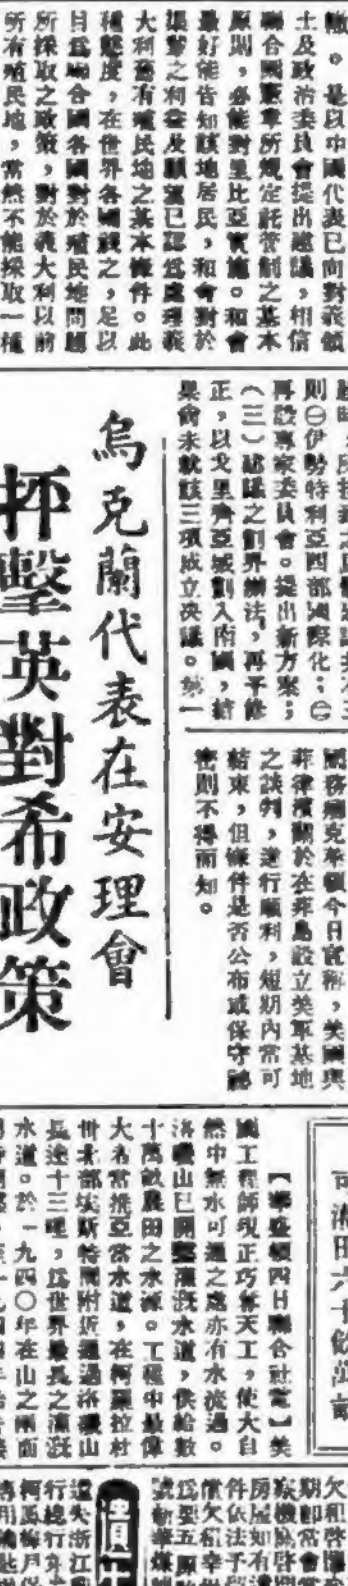 轍。是以中國代表已向對義領
土及政治委員會提出建議,相信
聯合國憲章所規定託管制之基本
原則,必能對里比亞實施。和會
最好能告知該地居民,和會對於
渠等之利益及願望已認爲處理義
大利舊有殖民地之基本條件。此
種態度,在世界各國視之,足以
目爲聯合國各國對於殖民地問題
所採取之政策,對於義大利以前
所有殖民地,當然不能採取一種
則㊀伊勢特利亞西部國際化;㊁
再設專家委員會。提出新方案;
(三)建議之劃界辦法,再予修
正,以戈里齊亞城劃入南國,結
果會未就該三項成立決議。第一
烏克蘭代表在安理會
抨擊英對希政策
國務卿克萊頓今日宣稱,美國與
菲律濱關於在菲島設立美軍基地
之談判,進行順利,短期內當可
結束,但條件是否公布或保守祕
密則不得而知。
可灌田六十餘萬畝
【華盛頓四日聯合社電】美
國工程師現正巧奪天工,使大自
然中無水可通之處亦有水流過。
洛磯山已開鑿灌漑水道,供給數
十萬畝農田之水源。工程中最偉
大者當推亞當水道,在柯羅拉杜
州北部埃斯特附近通過洛磯山
長達十三哩,爲世界最長之灌漑
水道。於一九四〇年在山之兩面
欠租啓
期卽當會
房屋如有
件依法予
償欠租幸
爲要五原
遺失浙江
行總行